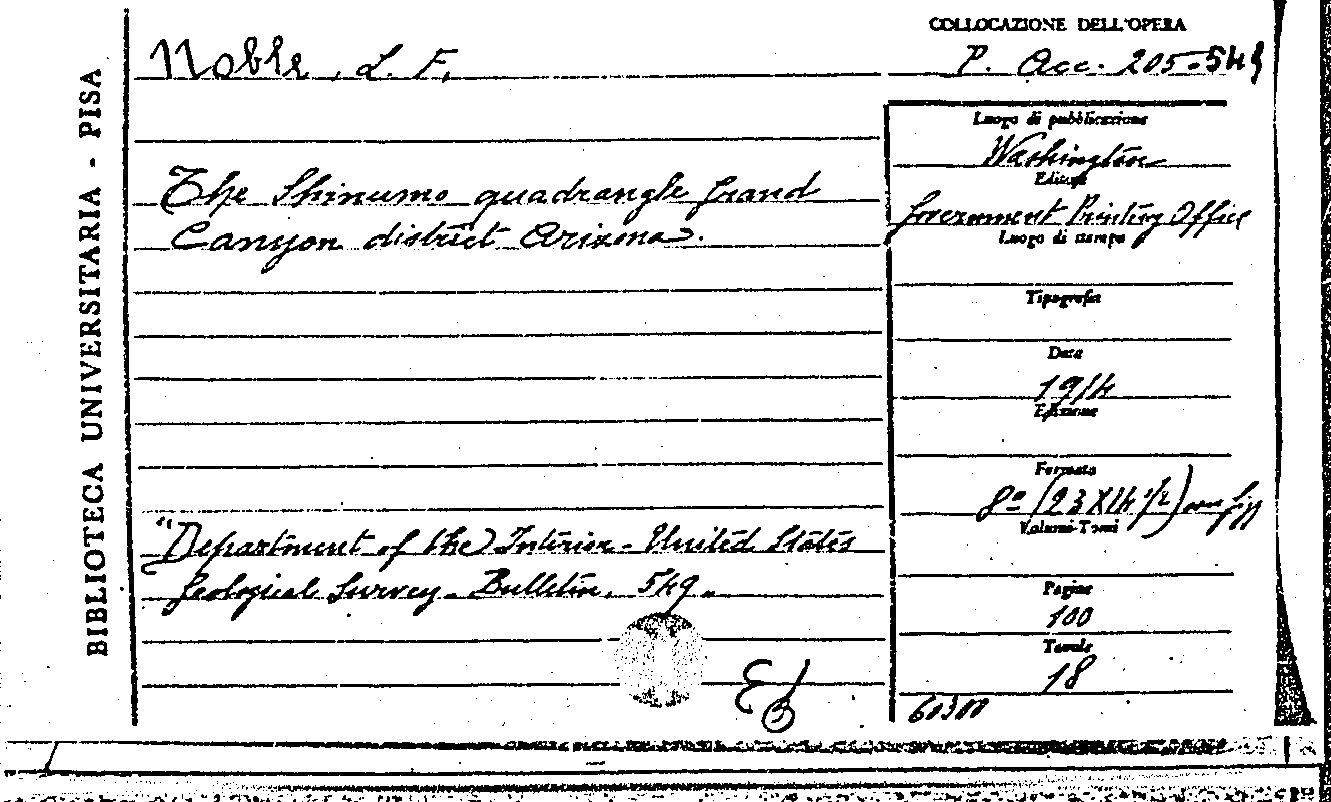 BIBLIOTECA UNIVERSITARIA - PISA
COLLOCAZIONE DELL'OPERA
Noble, L. F.
P. Acc. 205-549
The Shinumo quadrangle Grand
Canyon district Arizona.
"Department of the Interior - United States
Geological Survey - Bulletin, 549.
Luogo di pubblicazione
Washington
Editore
Government Printing Office
Luogo di stampa
Tipografia
Data
1914
Edizione
Formato
8º (23 X 14 1/2) con figg
Volumi-Tomi
Pagine
100
Tavole
18